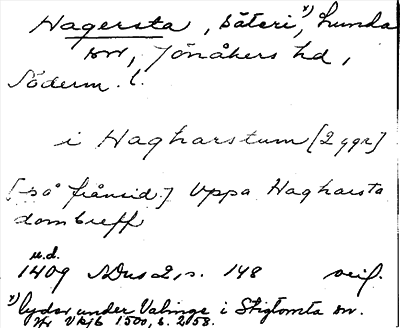 Hagersta, säteri, x) Lunda
sn, Jönåkers hd,
Söderm. l.
i Hagharstum [2 ggr]
[så frånsid.] Uppa Hagharsta
dombreff
u.d.
1409 SDns 2, s. 148 orig.
x) lyder under Valinge i Stigtomta sn.